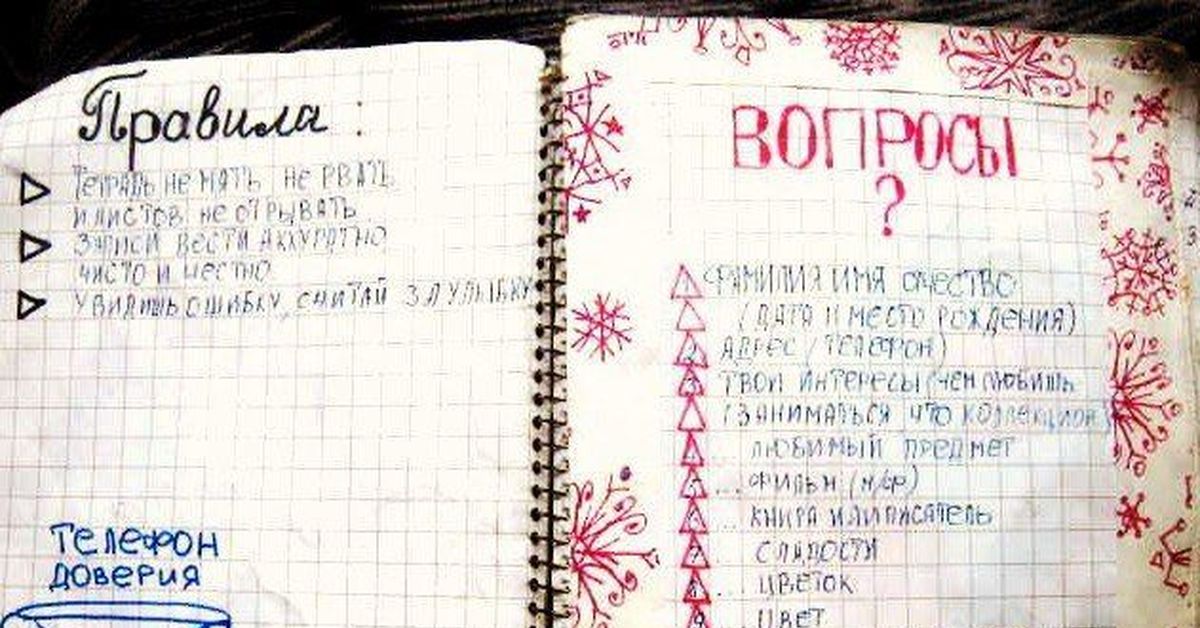 Правила:
Тетрадь не мять не рвать
и листов не отрывать
Записи вести аккуратно
чисто и честно
Увидишь ошибку, считай за улыбку
Телефон
доверия
ВОПРОСЫ
?
1 Фамилия имя очество
(дата и место рождения)
2 Адрес (телефон)
3 Твои интересы (чем любишь
(заниматься что коллекцион)
любимый предмет
5 ... фильм (м/ф)
6 ... книга или писатель
7 ... сладости
8 ... цветок
9 цвет